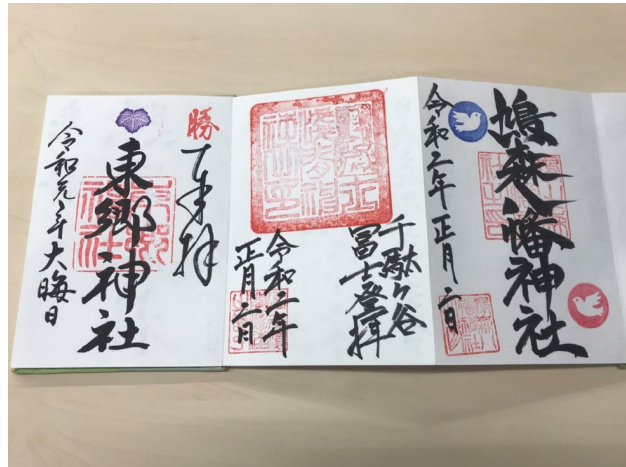 嶋森八幡神社
令和二年 正月二日
千駄ヶ谷
冨士登拝
令和二年
正月二日
勝
奉拝
東郷神社
令和元年大晦日